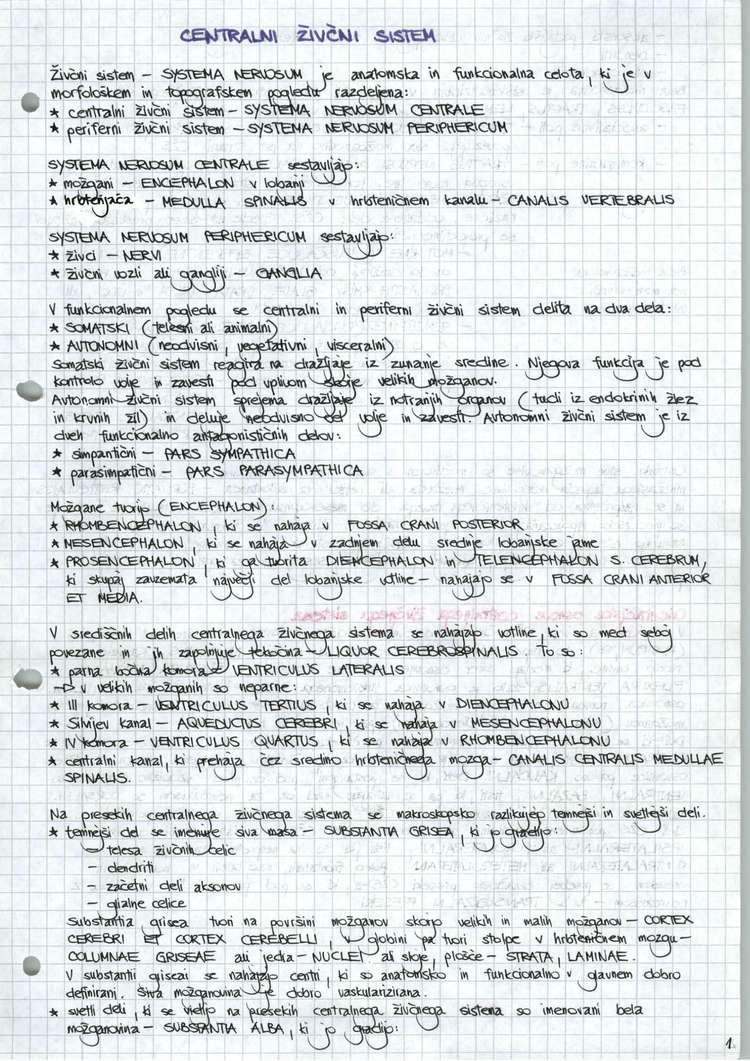 CENTRALNI ŽIVČNI SISTEM
Živčni sistem – SYSTEMA NERVOSUM je anatomska in funkcionalna celota, ki je v
morfološkem in topografskem pogledu razdeljena:
* centralni živčni sistem – SYSTEMA NERVOSUM CENTRALE
* periferni živčni sistem – SYSTEMA NERVOSUM PERIPHERICUM
SYSTEMA NERVOSUM CENTRALE sestavljajo:
* možgani – ENCEPHALON v lobanji
* hrbtenjača – MEDULLA SPINALIS v hrbteničnem kanalu – CANALIS VERTEBRALIS
SYSTEMA NERVOSUM PERIPHERICUM sestavljajo:
* živci – NERVI
* živčni vozli ali gangliji – GANGLIA
V funkcionalnem pogledu se centralni in periferni živčni sistem delita na dva dela:
* SOMATSKI (telesni ali animalni)
* AVTONOMNI (neodvisni, vegetativni, visceralni)
Somatski živčni sistem reagira na dražljaje iz zunanje sredine. Njegova funkcija je pod
kontrolo volje in zavesti pod vplivom skorje velikih možganov.
Avtonomni živčni sistem sprejema dražljaje iz notranjih organov (tudi iz endokrinih žlez
in krvnih žil) in deluje neodvisno od volje in zavesti. Avtonomni živčni sistem je iz
dveh funkcionalno antagonističnih delov:
* simpantični – PARS SYMPATHICA
* parasimpatični – PARS PARASYMPATHICA
Možgane tvorijo (ENCEPHALON):
* RHOMBENCEPHALON, ki se nahaja v FOSSA CRANI POSTERIOR
* MESENCEPHALON, ki se nahaja v zadnjem delu srednje lobanjske jame
* PROSENCEPHALON, ki ga tvorita DIENCEPHALON in TELENCEPHALON S. CEREBRUM,
ki skupaj zavzemata največji del lobanjske votline – nahajajo se v FOSSA CRANI ANTERIOR
ET MEDIA.
V središčnih delih centralnega živčnega sistema se nahajajo votline, ki so med seboj
povezane in jih zapolnjuje tekočina – LIQUOR CEREBROSPINALIS. To so:
* parna bočna komora – VENTRICULUS LATERALIS
–> v velikih možganih so neparne:
* III komora – VENTRICULUS TERTIUS, ki se nahaja v DIENCEPHALONU
* Silvijev kanal – AQUEDUCTUS CEREBRI, ki se nahaja v MESENCEPHALONU
* IV komora – VENTRICULUS QUARTUS, ki se nahaja v RHOMBENCEPHALONU
* centralni kanal, ki prehaja čez sredino hrbteničnega mozga – CANALIS CENTRALIS MEDULLAE
SPINALIS.
Na presekih centralnega živčnega sistema se makroskopsko razlikujejo temnejši in svetlejši deli.
* temnejši del se imenuje siva masa – SUBSTANTIA GRISEA, ki jo gradijo:
– telesa živčnih celic
– dendriti
– začetni deli aksonov
– glialne celice
Substantia grisea tvori na površini možganov skorjo velikih in malih možganov – CORTEX
CEREBRI ET CORTEX CEREBELLI, v globini pa tvori stolpe v hrbteničnem mozgu –
COLUMNAE GRISEAE ali jedra – NUCLEI ali sloje, plošče – STRATA, LAMINAE.
V substantii griseai se nahajajo centri, ki so anatomsko in funkcionalno v glavnem dobro
definirani. Siva možganovina je dobro vaskularizirana.
* svetli deli, ki se vidijo na presekih centralnega živčnega sistema so imenovani bela
možganovina – SUBSTANTIA ALBA, ki jo gradijo:
1.